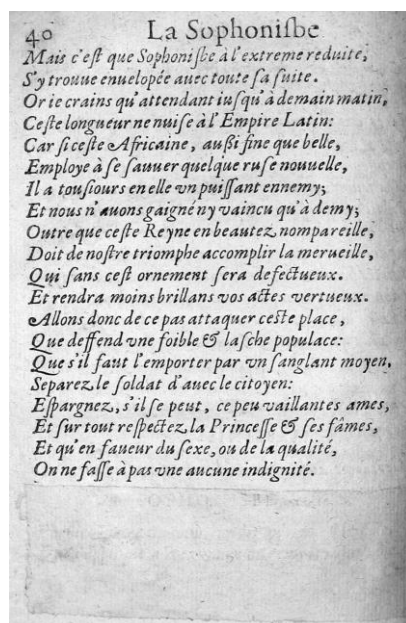 40 La Sophoniſbe
Mais c'eſt que Sophoniſbe à l'extreme reduite,
S'y trouue enuelopée auec toute ſa ſuite.
Or ie crains qu'attendant iuſqu'à demain matin,
Ceſte longueur ne nuiſe à l'Empire Latin:
Car ſi ceſte Africaine, auſſi fine que belle,
Employe à ſe ſauuer quelque ruſe nouuelle,
Il a touſiours en elle vn puiſſant ennemy;
Et nous n'auons gaigné ny vaincu qu'à demy;
Outre que ceſte Reyne en beautez nompareille,
Doit de noſtre triomphe accomplir la merueille,
Qui ſans ceſt ornement ſera defectueux.
Et rendra moins brillans vos actes vertueux.
Allons donc de ce pas attaquer ceſte place,
Que deffend vne foible & laſche populace:
Que s'il faut l'emporter par vn ſanglant moyen,
Separez le ſoldat d'auec le citoyen:
Eſpargnez, s'il ſe peut, ce peu vaillantes ames,
Et ſur tout reſpectez la Princeſſe & ſes fâmes,
Et qu'en faueur du ſexe, ou de la qualité,
On ne faſſe à pas vne aucune indignité.